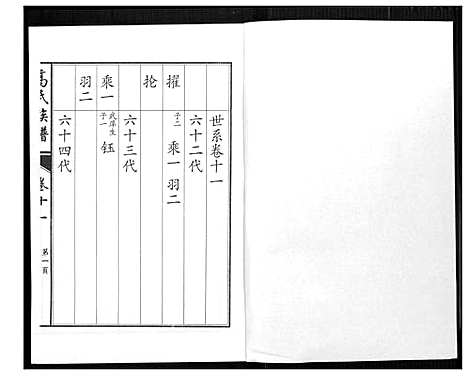 世系卷十一
六十二代
擢 子二 乘一 羽二
抡
六十三代
乘一 武庠生 子一 鈺
羽二
六十四代
族譜 卷十一 第一頁